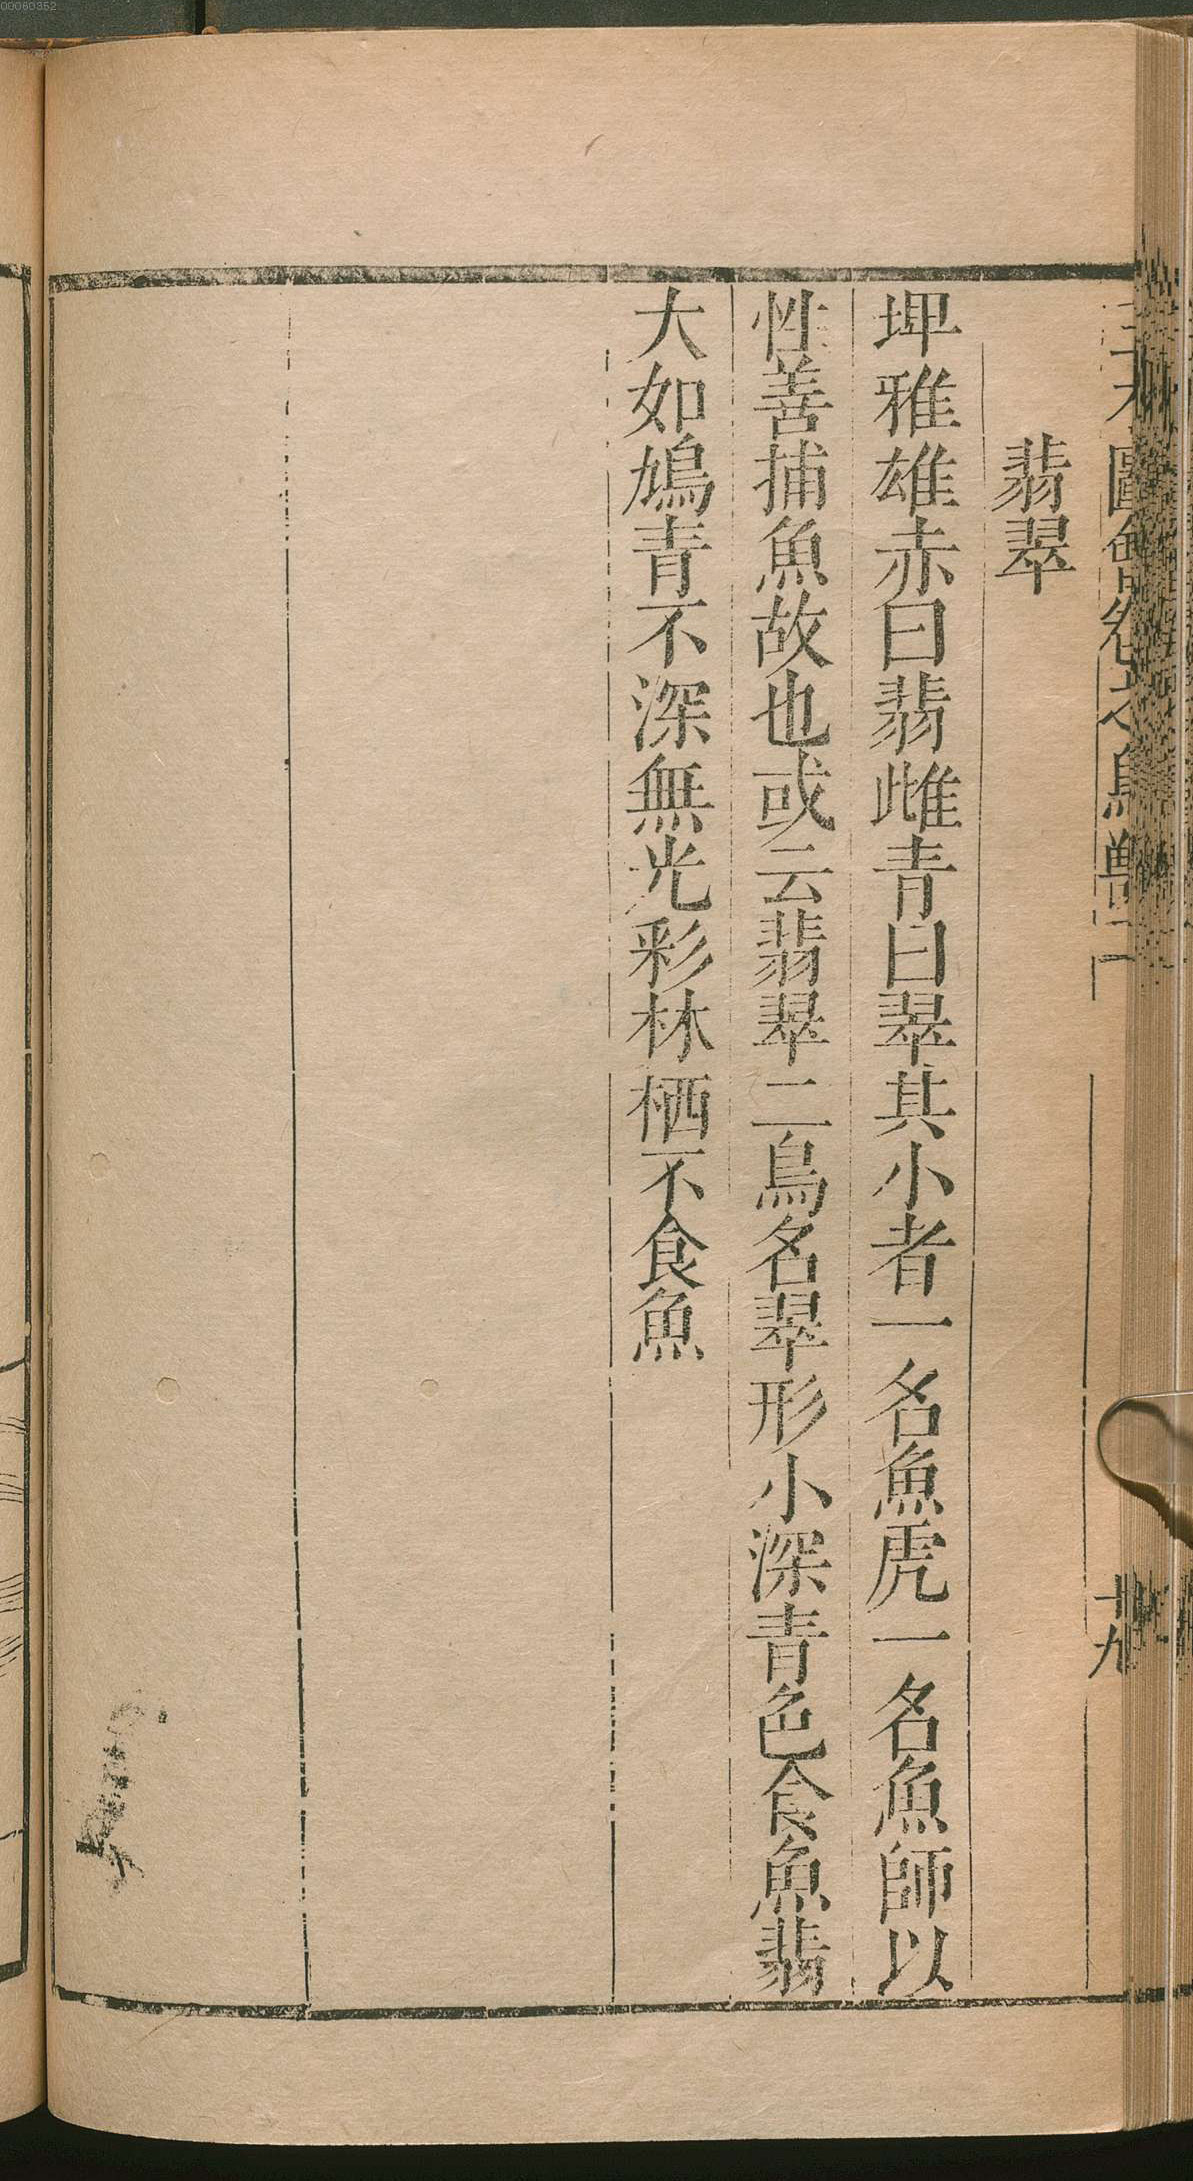 00060352
圖會卷之鳥獸二
十九
翡翠
埤雅雄赤曰翡雌青曰翠其小者一名魚虎一名魚師以
性善捕魚故也或云翡翠二鳥名翠形小深青色食魚翡
大如鳩青不深無光彩林栖不食魚